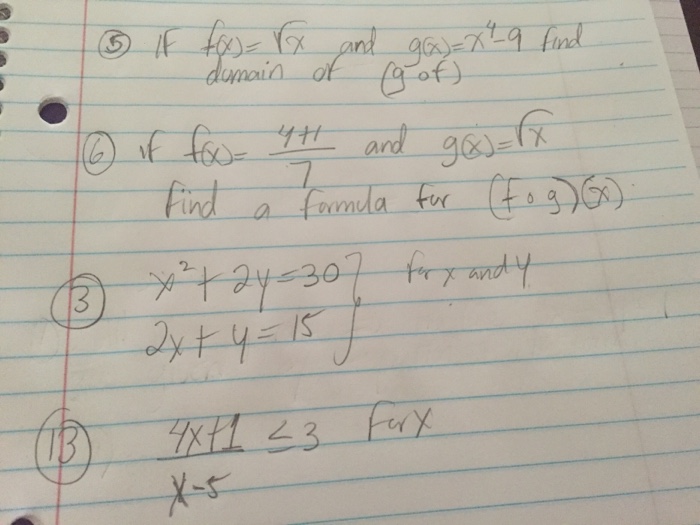 ⑤ If f(x)= √x and g(x)=x⁴-9 find
domain of (g o f)
⑥ if f(x)= 4+1/7 and g(x)=√x
find a formula for (f o g)(x).
③ x²+2y=30 } for x and y
2x+y=15
⑬ 4x+1 ≤ 3 For x
x-5